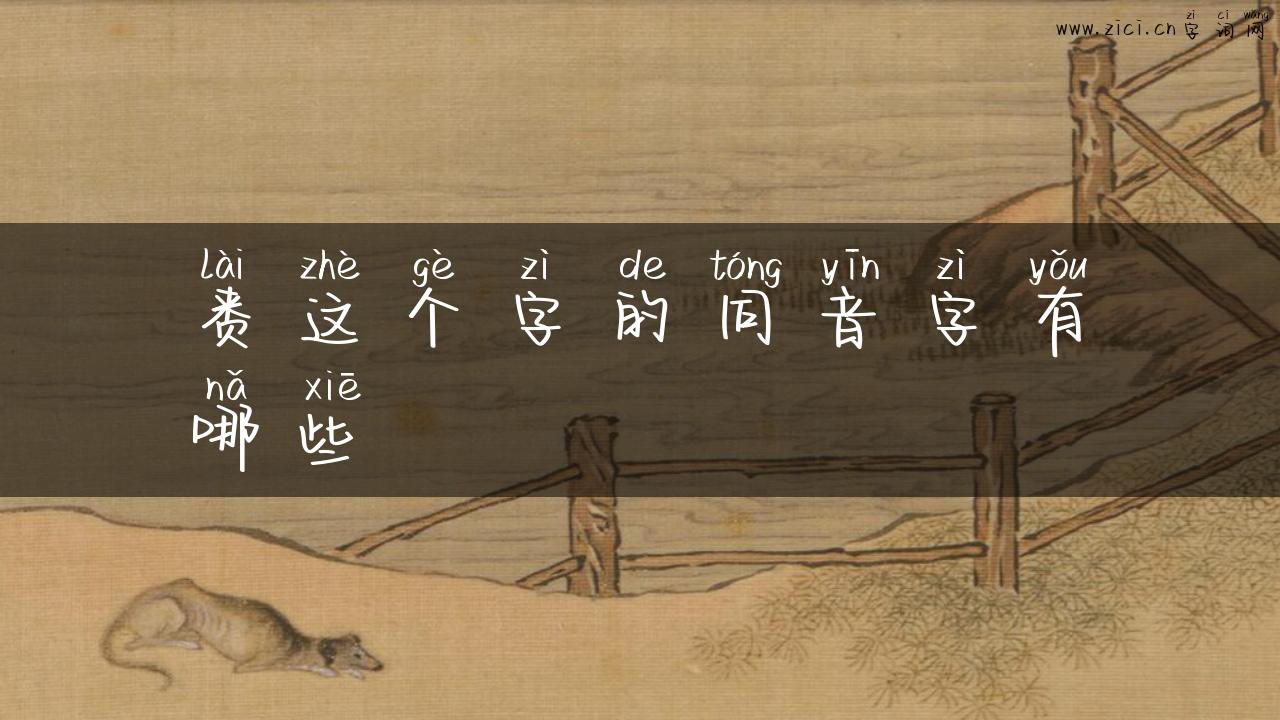 zì cí wǎng
www.zici.cn 字 词 网
lài zhè gè zì de tóng yīn zì yǒu
赉 这 个 字 的 同 音 字 有
nǎ xiē
哪 些